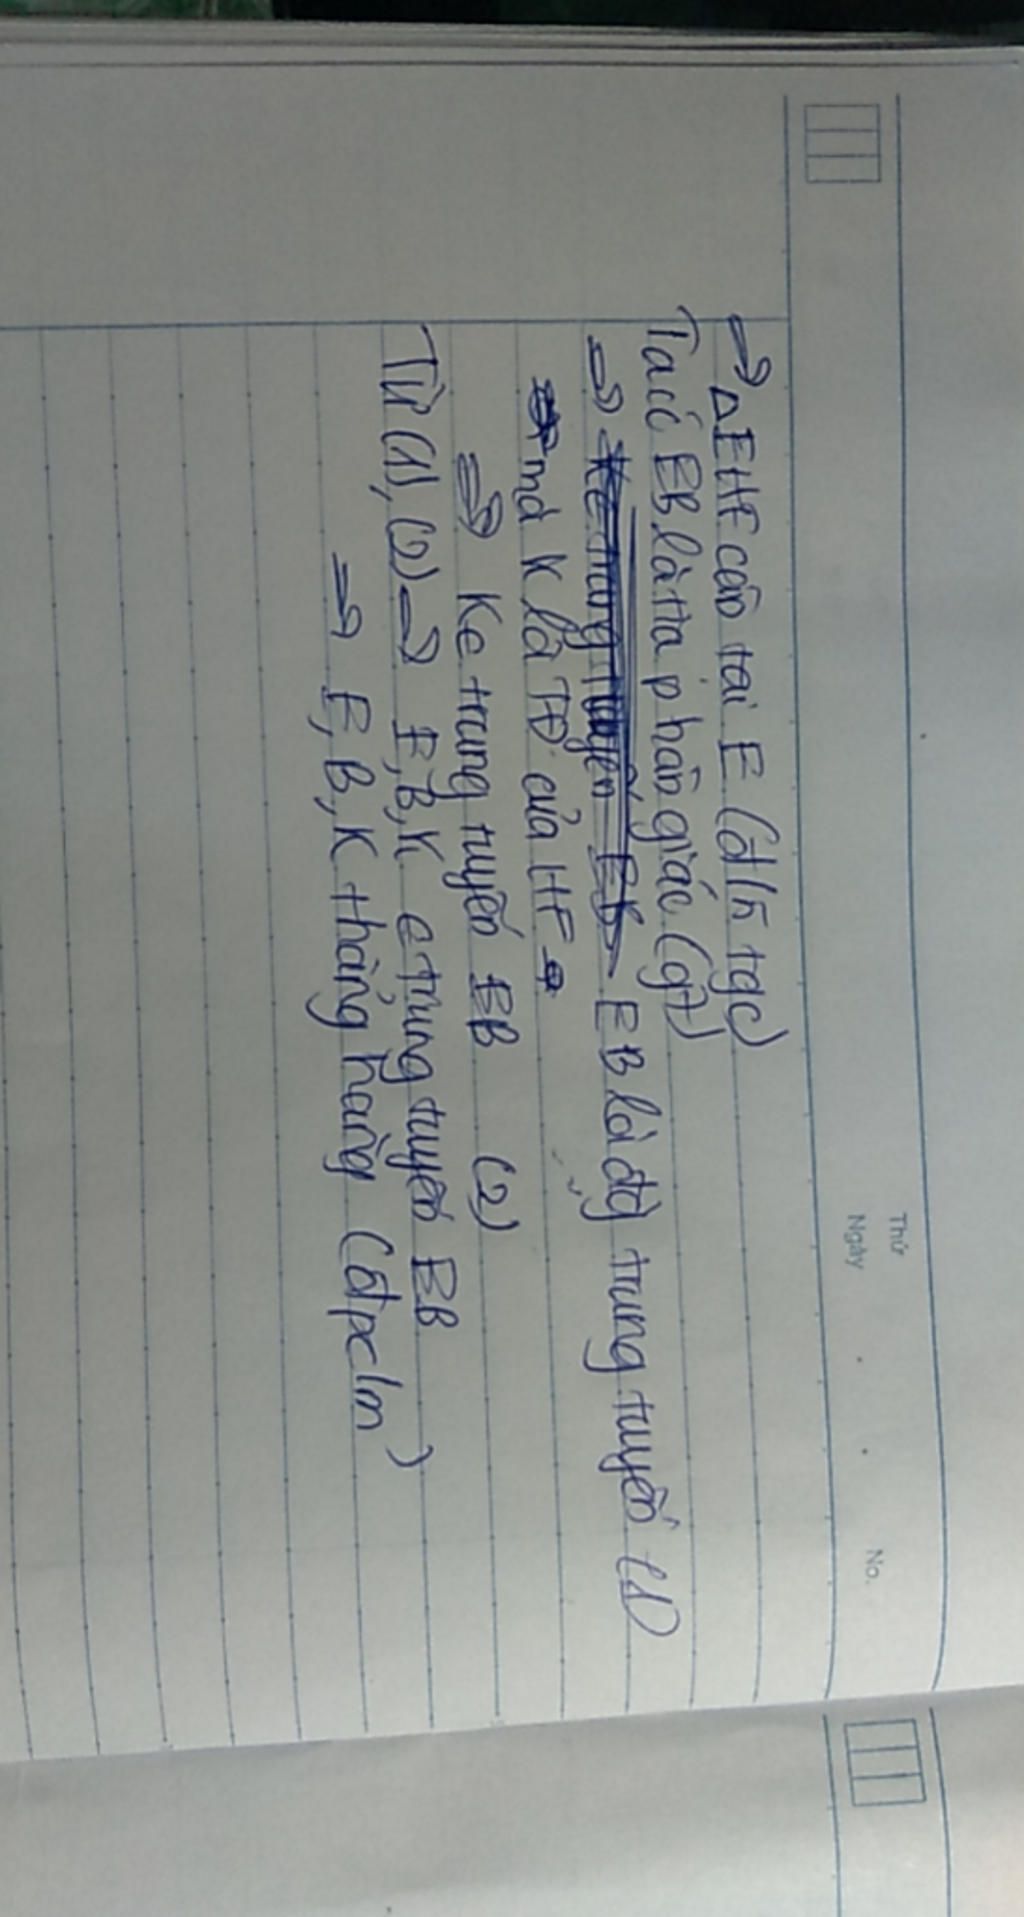 Thứ
Ngày
No.
⇒ ΔEHF cân tại E (đ/n tgc)
Ta có EB là tia phân giác (gt)
⇒ EB là đg trung tuyến (1)
mà K là TĐ của HF
⇒ K ∈ trung tuyến EB (2)
Từ (1), (2) ⇒ E, B, K ∈ trung tuyến EB
⇒ E, B, K thẳng hàng (đpcm)